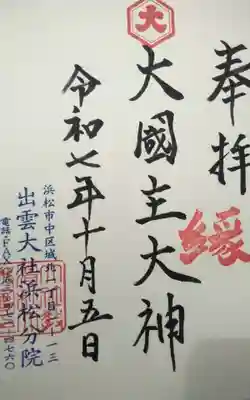 奉拝
縁
大
大國主大神
令和七年十月五日
浜松市中区城北一丁目
出雲大社浜松分院
電話・FAX